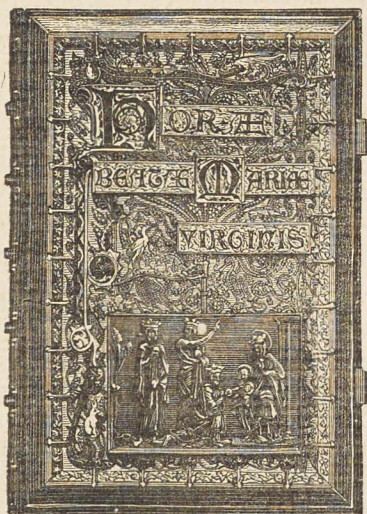 HORÆ
BEATÆ MARIÆ
VIRGINIS